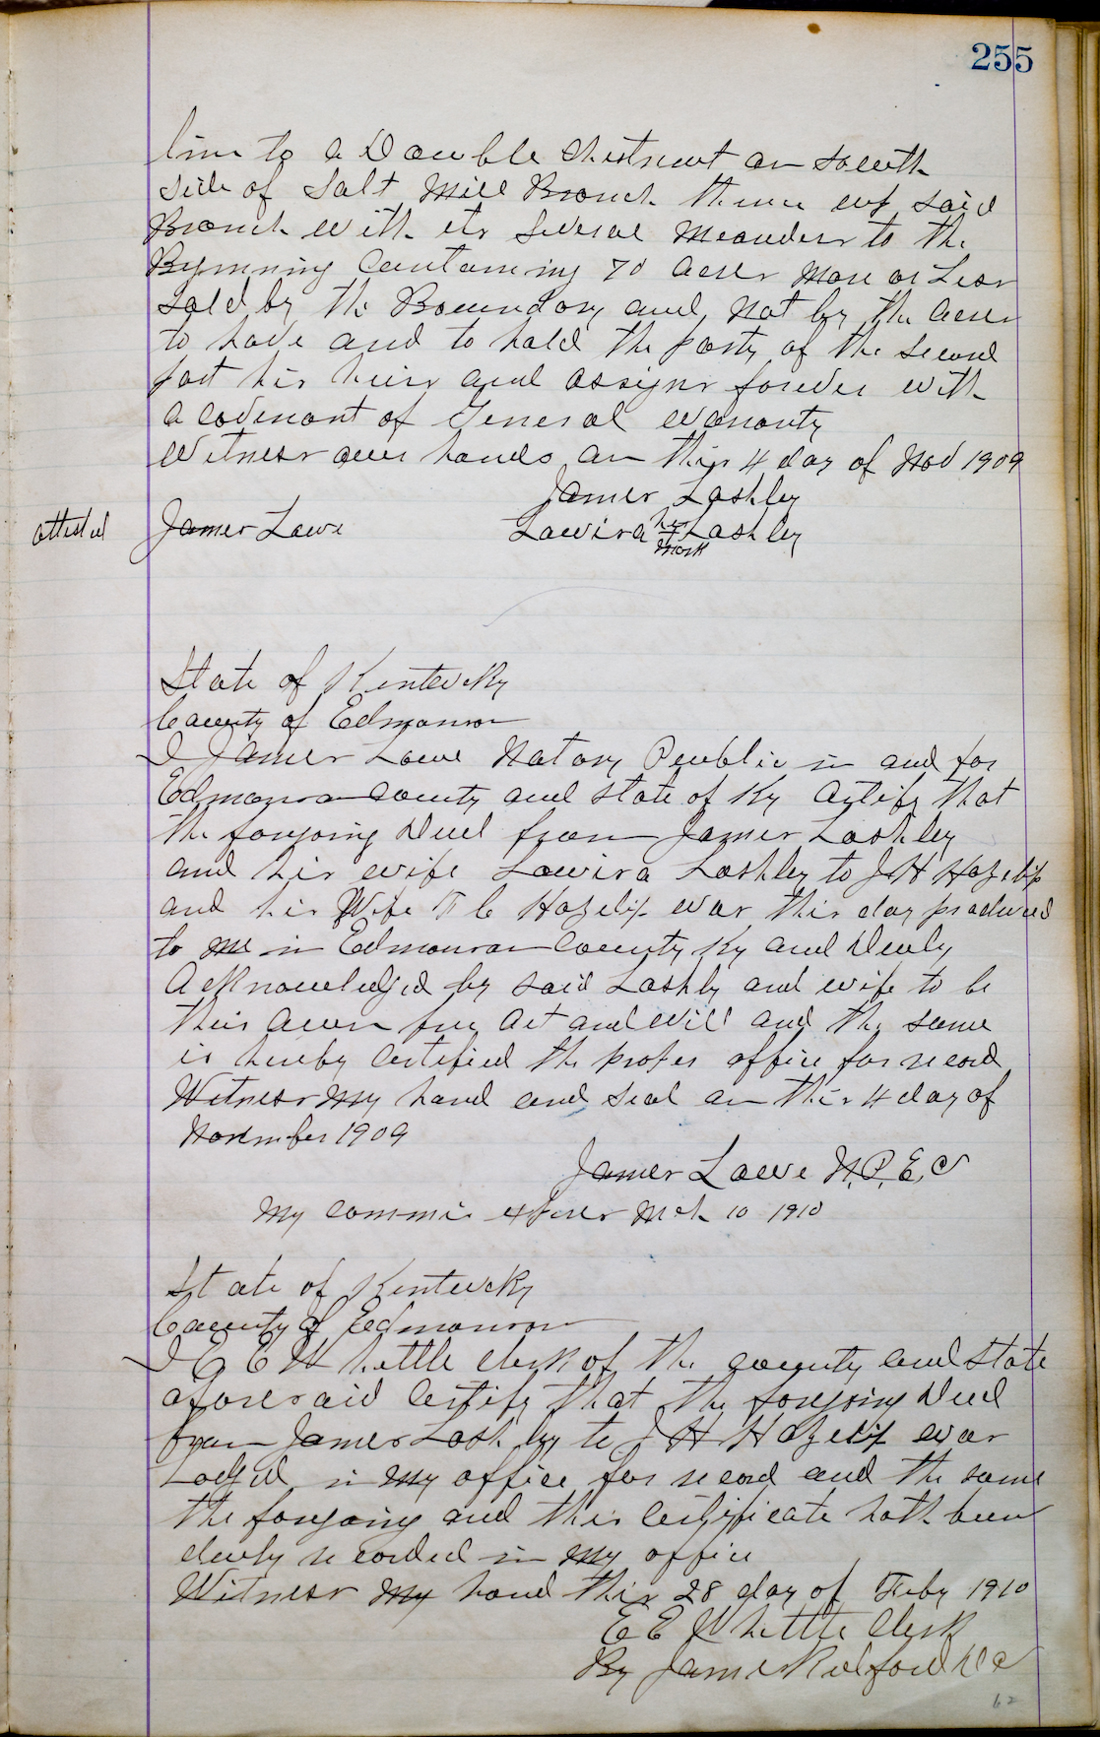 255
line to a Double Chestnut on South
side of Salt Mill Branch thence up said
Branch with its several Meanders to the
Beginning Containing 70 acres More or Less
Sold by the Boundary and Not by the acres
to have and to hold the party of the second
part his heirs and assigns forever with
a covenant of General waranty
Witness our hands on this 4 day of Nov 1909
James Lashley
attested James Lowe Lawira her + mark Lashley
State of Kentucky
County of Edmonson
I James Lowe Notary Public in and for
Edmonson County and state of Ky Certify that
the forgoing Deed from James Lashley
and his wife Lawira Lashley to J H Hazelip
and his Wife T C Hazelip was this day produced
to me in Edmonson County Ky and Duely
Acknowledged by said Lashly and wife to be
their own free Act and Will and the same
is hereby certified the proper office for record
Witness My hand and Seal on this 4 day of
November 1909
James Lowe N.P.E.C
My commis expires Mch 10 1910
State of Kentucky
County of Edmonson
I E E Whittle clerk of the county and State
aforesaid Certify that the forgoing Deed
from James Lashley to J H Hazelip was
Lodged in my office for record and the same
the forgoing and this Certificate hath been
duely recorded in My office
Witness My hand this 28 day of Feby 1910
E E Whittle Clerk
By James Redford D C